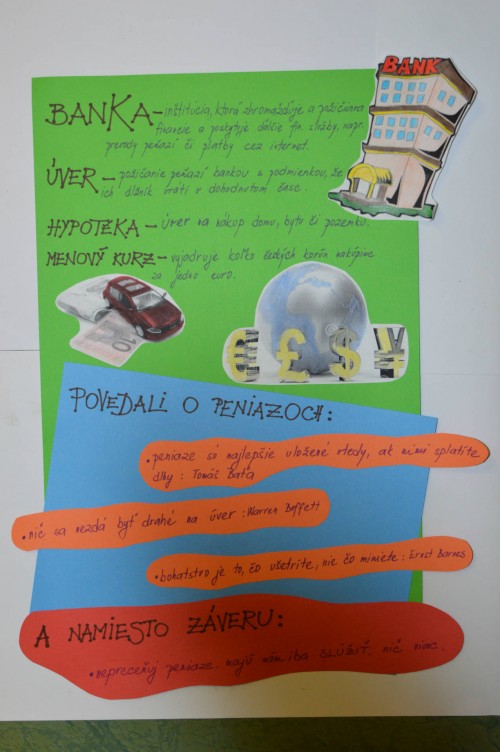 BANK
BANKA - inštitúcia, ktorá zhromažďuje a požičiava
financie a poskytuje ďalšie fin. služby, napr.
prevody peňazí či platby cez internet.
ÚVER - požičanie peňazí bankou s podmienkou, že
ich dlžník vráti v dohodnutom čase.
HYPOTEKA - úver na nákup domu, bytu či pozemku.
MENOVÝ KURZ - vyjadruje koľko českých korún nakúpime
za jedno euro.
10
€ £ $ ¥
POVEDALI O PENIAZOCH:
• peniaze sú najlepšie uložené vtedy, ak nimi splatíte
dlhy : Tomáš Baťa
• nič sa nezdá byť drahé na úver : Warren Buffett
• bohatstvo je to, čo ušetríte, nie čo miniete : Ernst Barnes
A NAMIESTO ZÁVERU:
• nepreceňuj peniaze. majú nám iba SLÚŽIŤ. nič viac.